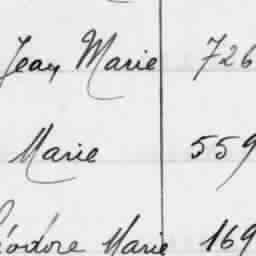 Jean Marie 726
Marie 559
éodore Marie 169